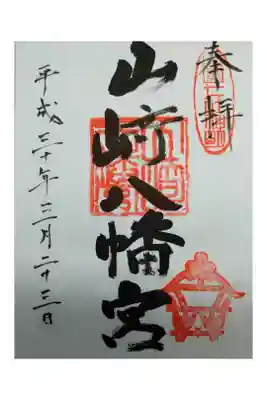 奉拝
山崎八幡宮
平成三十年三月二十三日